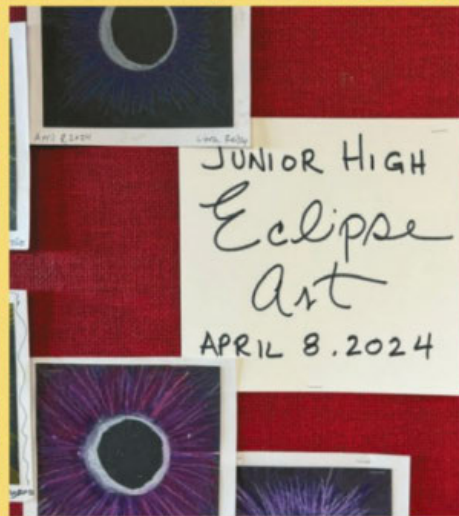 April 8, 2024
JUNIOR HIGH
Eclipse
Art
APRIL 8.2024